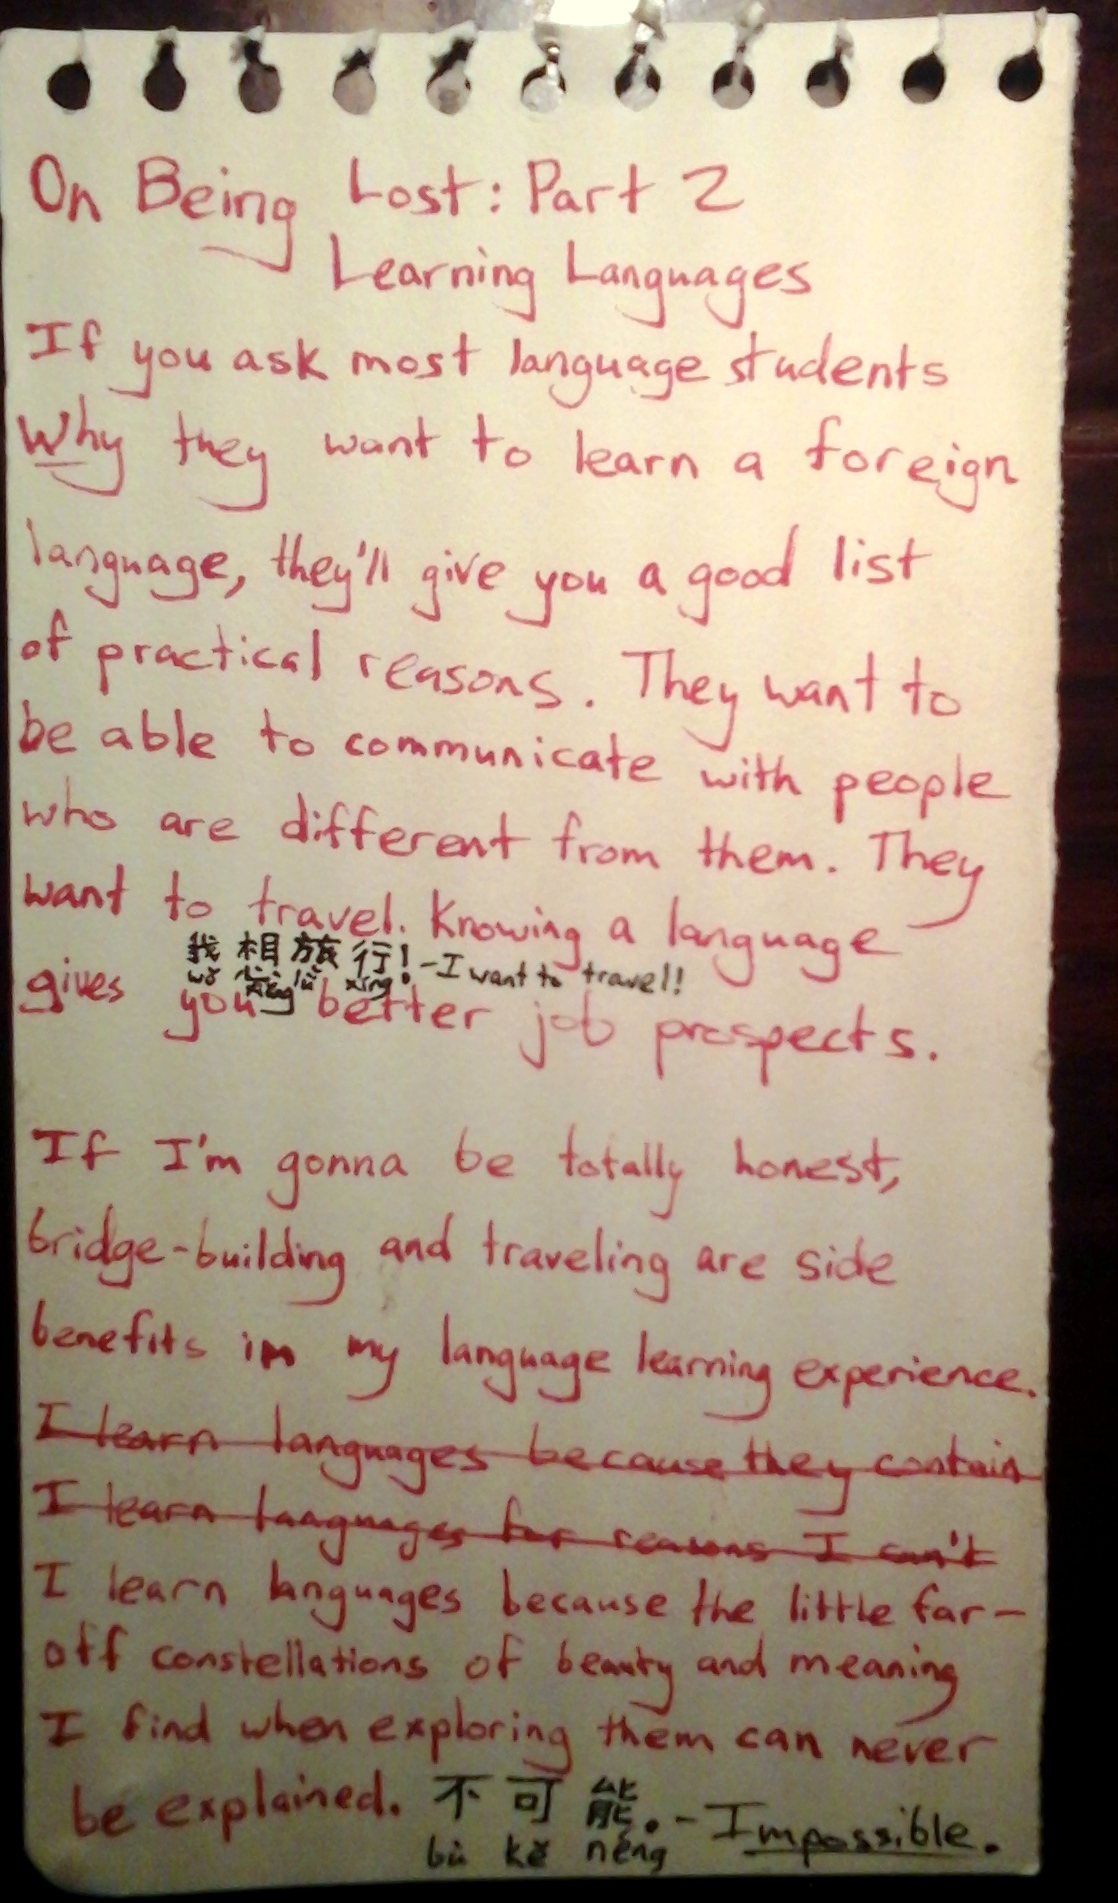 On Being Lost: Part 2
Learning Languages
If you ask most language students
Why they want to learn a foreign
language, they'll give you a good list
of practical reasons. They want to
be able to communicate with people
who are different from them. They
want to travel. Knowing a language
我相旅行! - I want to travel!
wǒ xiǎng lǚ xíng!
gives you better job prospects.
If I'm gonna be totally honest,
bridge-building and traveling are side
benefits in my language learning experience.
I learn languages because they contain
I learn languages for reasons I can't
I learn languages because the little far-
off constellations of beauty and meaning
I find when exploring them can never
be explained. 不可能。- Impossible.
bù kě néng